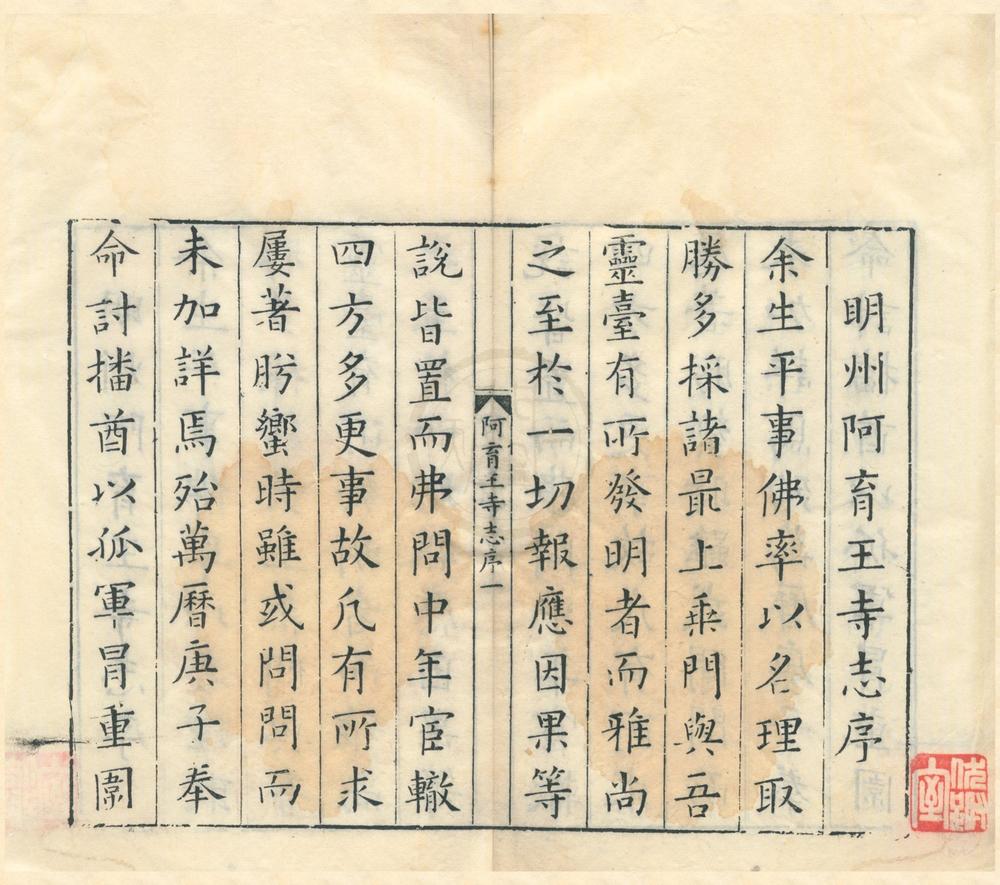 明州阿育王寺志序
余生平事佛率以名理取
勝多採諸最上乘門與吾
靈臺有所發明者而雅尚
之至於一切報應因果等
阿育王寺志序一
說皆置而弗問中年宦轍
四方多更事故凡有所求
屢著肹蠁時雖或問問而
未加詳焉殆萬曆庚子奉
命討播酋以孤軍冒重圍